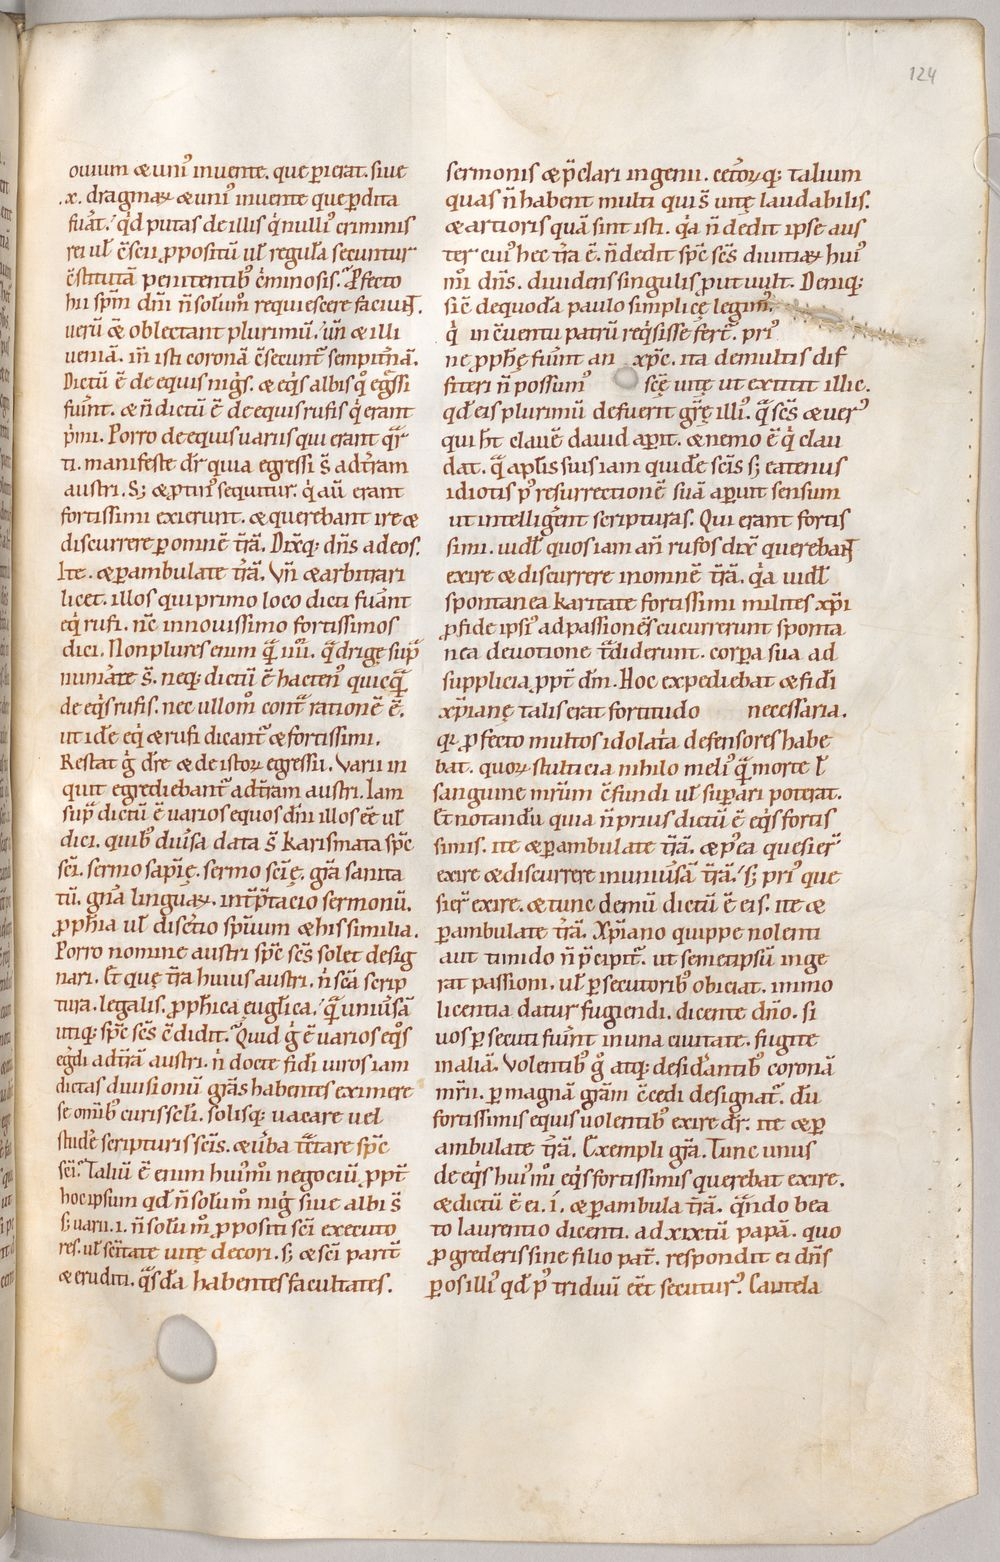 124
ouium & uni᷒ inuente. que ꝑierat. siue
.x. dragmaꝝ & uni᷒ inuente que ꝑdita
fuāt. qd putas de illis q̇ nulli᷒ criminis
rei uł c̄scii ꝓpositū uł regulā secuntur
c̄stitutā penitentib᷒ c̄minosis. Ꝑfecto
hii spm̄ dn̄i n̄ solum̄ requiescere faciunt.
uerū &̄ oblectant plurimū. un̄ & illi
ueniā. in̄ isti coronā c̄secunt̄ sempit̄nā.
Dictū ē de equis nig̍s. & eq̍s albis q᷒ egssi
fuīnt. & n̄ dictū ē de equis rufis q̍ erant
p̍mi. Porro de equis uariis qui erant qr̄
ti. manifeste dr̄ quia egressi s̄ ad tr̄am
austri. S; & ꝓtin᷒ sequitur. q̍ aū erant
fortissimi exierunt. & querebant ire &
discurrere ꝑ omnē tr̄ā. Dix̄q; dn̄s ad eos.
Ite. & ꝑambulate tr̄ā. Vn̄ & arbitrari
licet. illos qui primo loco dicti fuānt
eq̍ rufi. nc̄ in nouissimo fortissimos
dici. Non plures enim qm̄ iiii. qdrigę sup
numāte s̄. neq; dictū ē hacten᷒ quicqm̄
de eq̍s rufis. nec ullom̊ cont̄ rationē ē.
ut idē eq̍ & rufi dicant̄ & fortissimi.
Restat g̊ dr̄e & de istoꝝ egressu. Varii in
quit egrediebant̄ ad tr̄am austri. Iam
sup̄ dictū ē uarios equos dn̄i illos ēē uł
dici. quib᷒ diuīsa data s̄ karismata spc̄
sc̄i. sermo sapīę. sermo sc̄ię. grā sanita
tū. gnā̄ linguaꝝ. int̄ptacio sermonū.
ꝓphia uł discr̄tio spūum & his similia.
Porro nomine austri spc̄ sc̄s solet desig
nari. Et quę tr̄a huius austri. n̍ sc̄a scrip
tura. legalis. ꝓphica euglica. qm̄ uniūsā
utiq; spc̄ sc̄s c̄didit. Quid g̊ ē uarios eq̊s
eg̍di ad tr̄ā austri. n̍ docte fidi uiros iam
dictas diuisionū grās habentes eximere
se om̄ib᷒ curis scłi. solisq; uacare uel
studē scripturis sc̄is. & ūba tc̄tare spc̄
sc̄i. Taliū ē enim hui᷒m̊i negociū ꝓpt̄
hoc ipsum qd n̄ solum̄ nig̍ siue albi s̄
s; uarii. i. n̄ solum̄ ꝓpositi sc̄i executo
res. uł sc̄itate uitę decori. s; & sc̄i parit̄
& eruditi. qs̄dā habentes facultates.
sermonis & p̄clari ingenii. cet̄oꝝq; talium
quas n̄ habent multi qui s̄ uitę laudabilis.
& artioris quā sint isti. q̍a n̄ dedit ipse aus
ter cui᷒ hec tr̄a ē. n̄ dedit spc̄ sc̄s diuitiaꝝ hui᷒
m̊i dn̄s. diuidens singulis ꝓut uult. Deniq;
sic̄ de quodā paulo simplice legim᷒.
q̍ in c̄uentu patrū req̍sisse fert̄. pri᷒
ne ꝓphę fuīnt an xp̄c. ita de multis dif
fiteri n̄ possum᷒ sc̄ę uitę ut extitit ille.
qd eis plurimū defuerit gr̄ę illi᷒. qm̄ sc̄s & uer᷒
qui ht̄ clauē dauid aperit. & nemo ē q̍ clau
dat. qm̄ aplis suis iam quidē sc̄is s; eatenus
idiotis p᷒ resurrectionē suā aperuit sensum
ut intelligent scripturas. Qui erant fortis
simi. uidł quos iam an̄ rufos dix̄ querebant
exire & discurrere in omnē tr̄ā. q̍a uidł
spontanea karitate fortissimi milites xp̄i
ꝓ fide ipsi᷒ ad passionēs cucurrerunt sponta
nea deuotione tr̄diderunt. corpora sua ad
supplicia ꝓpt̄ dm̄. Hoc expediebat & fidi
xp̄ianę talis erat fortitudo necessaria.
qr̄ ꝓfecto multos idolat̍a defensores habe
bat. quoꝝ stulticia nihilo meli᷒ qm̄ morte ł
sanguine mr̄um c̄fundi uł supari poterat.
Et notandū quia n̄ prius dictū ē eq̍s fortis
simis. ite & ꝑambulate tr̄ā. & p᷒ea quesier̄
exire & discurrere in uniūsā tr̄ā. s; pri᷒ que
sier̄ exire. & tunc demū dictū ē eis. ite &
ꝑambulate tr̄ā. Xp̄iano quippe nolenti
aut timido n̄ p̄cipit̄. ut semetipsū inge
rat passioni. uł ꝑsecutorib᷒ obiciat. immo
licentia datur fugiendi. dicente dn̄o. si
uos ꝑsecuti fuīnt in una ciuitate. fugite
in aliā. Volentib᷒ g̊ atq; desidantib᷒ coronā
mr̄ii. ꝑ magnā grām c̄cedi designat̄. dū
fortissimis equis uolentib᷒ exire dr̄. ite & ꝑ
ambulate tr̄ā. Exempli grā. Tunc unus
de eq̍s hui᷒m̊i eq̍s fortissimis querebat exire.
& dictū ē ei. i. & ꝑambula tr̄ā. qn̄do bea
to laurentio dicenti. ad xixtū papā. quo
ꝓgrederis sine filio pat̄. respondit ei dn̄s
ꝑ os illi᷒ qd p᷒ triduū eēt secutur᷒. Cautela